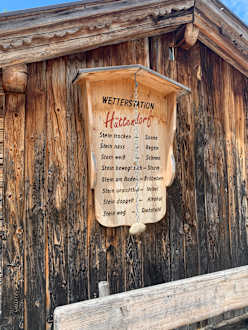 WETTERSTATION
Hüttendorf
Stein trocken Sonne
Stein nass Regen
Stein weiß Schnee
Stein bewegt sich Sturm
Stein am Boden Erdbeben
Stein unsichtbar Nebel
Stein doppelt Alkohol
Stein weg Diebstahl